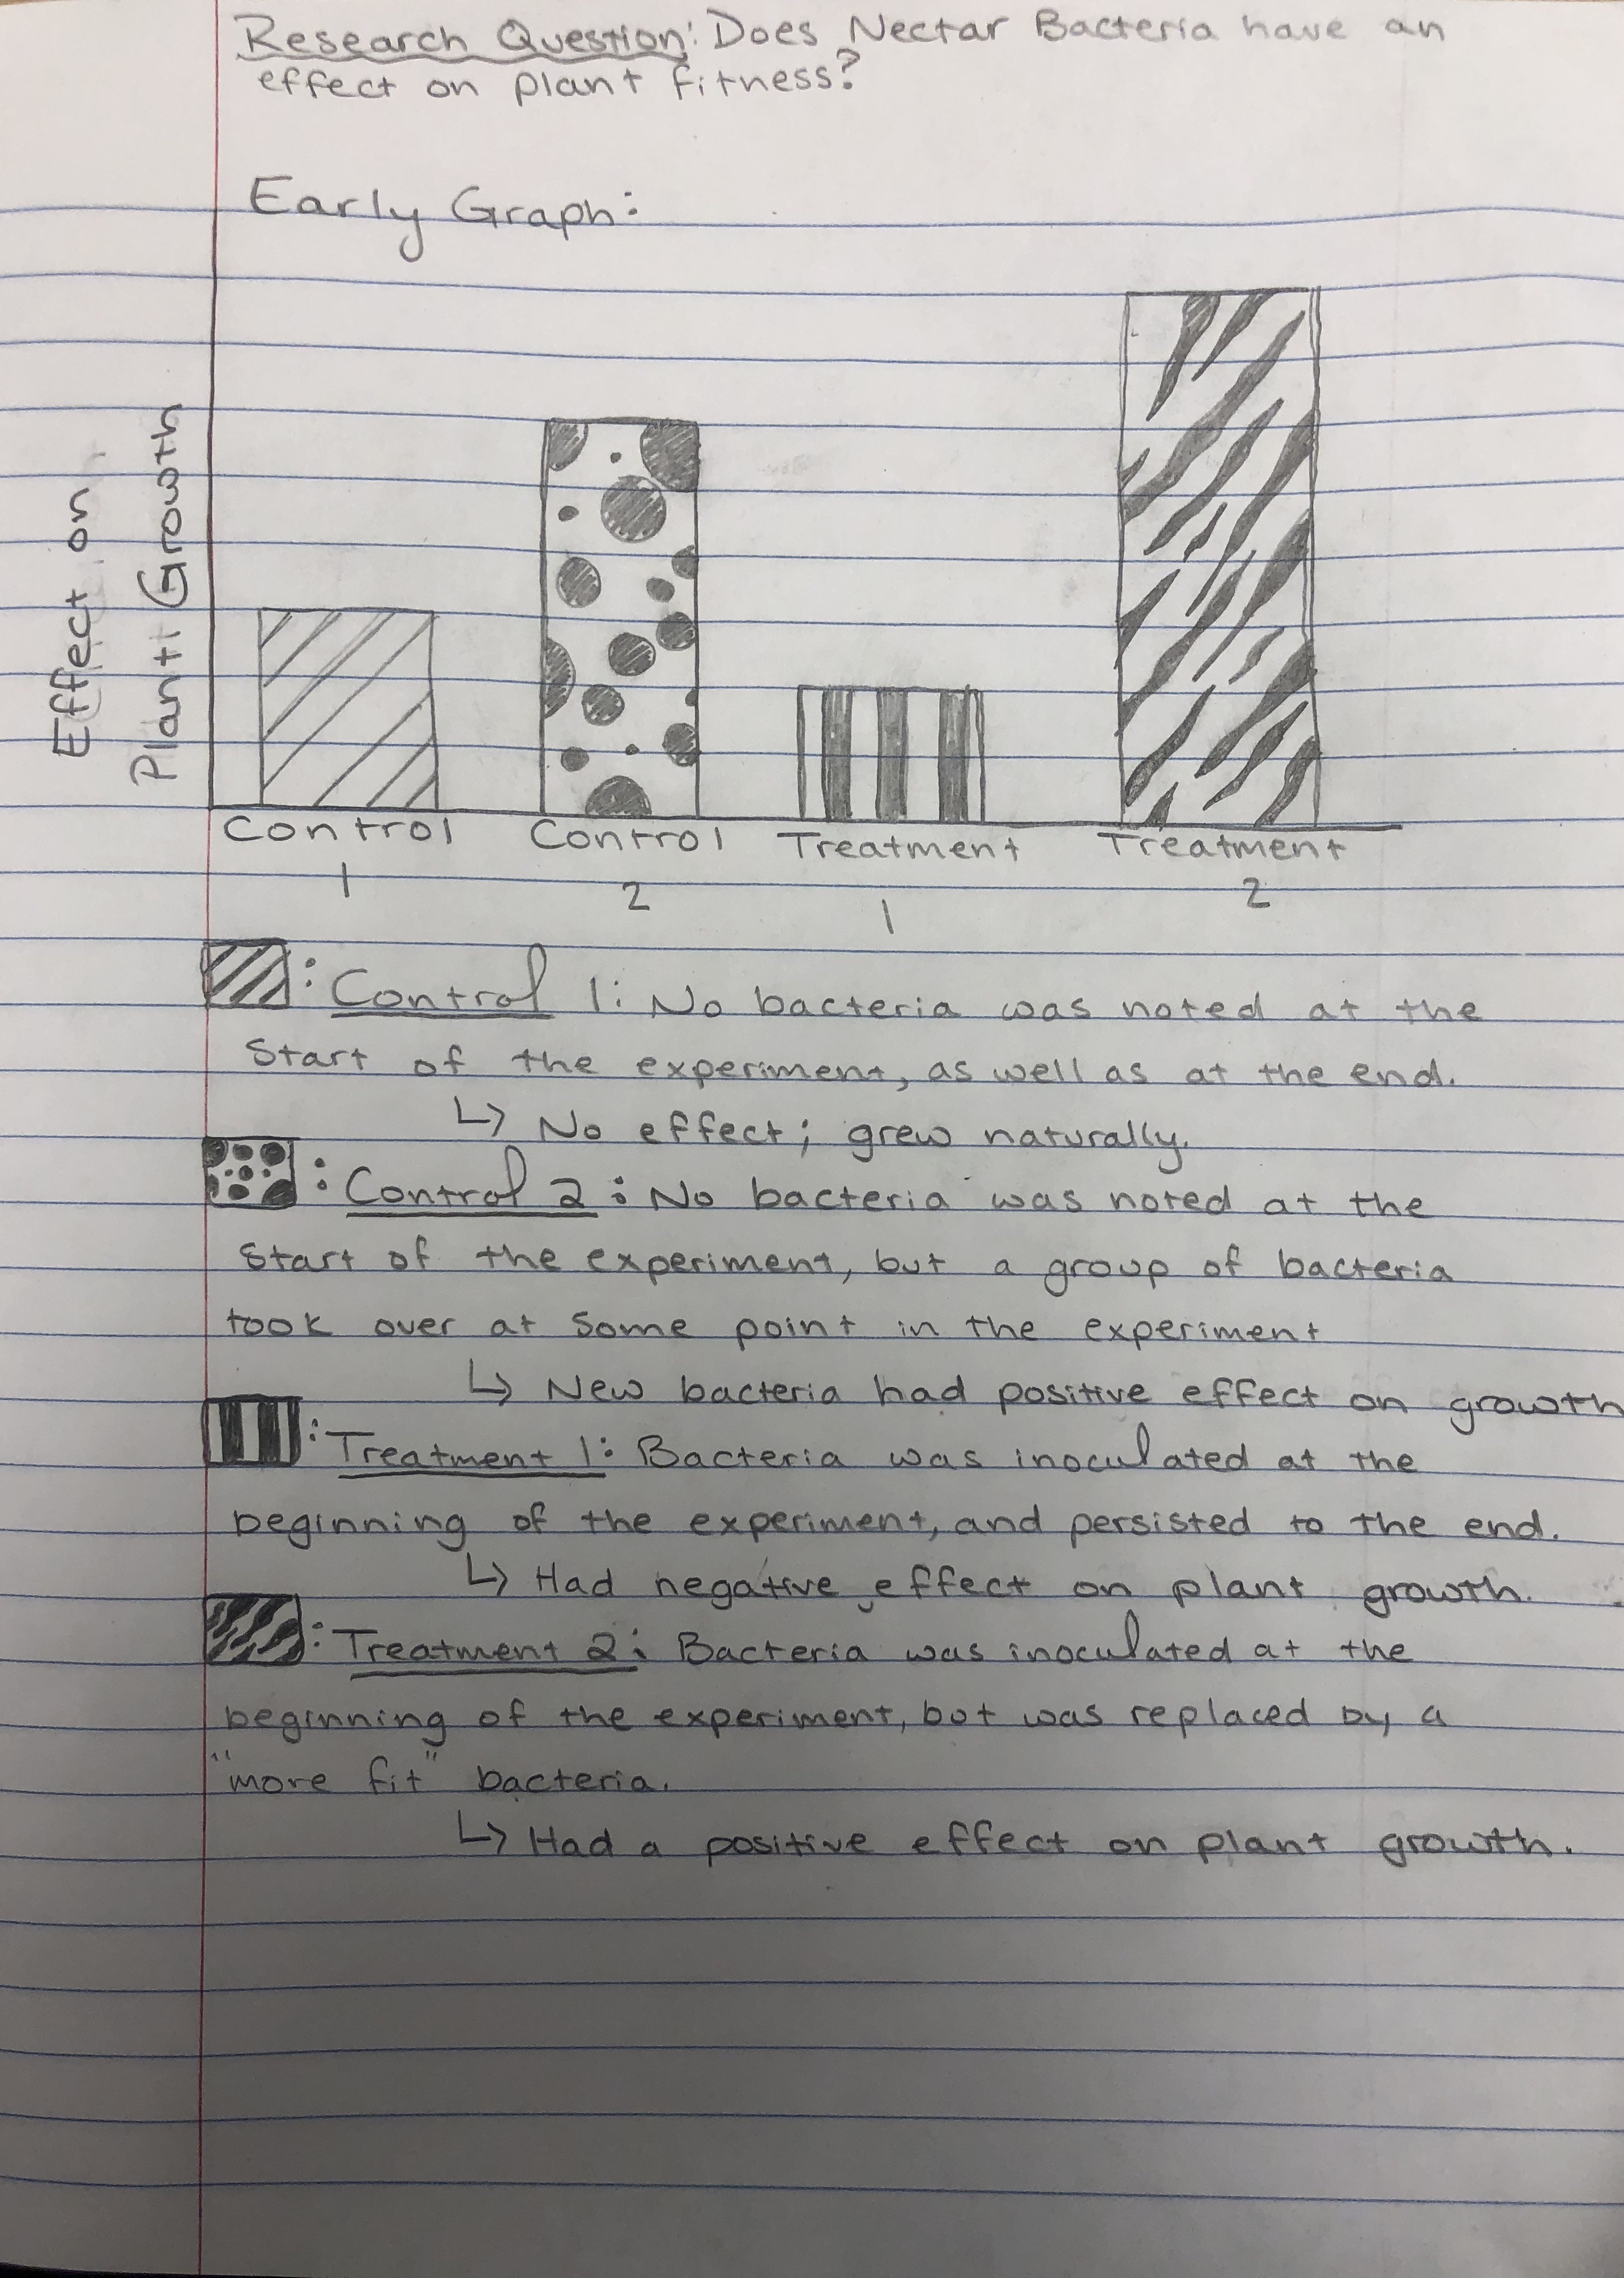 Research Question: Does Nectar Bacteria have an
effect on plant fitness?
Early Graph:
Effect on
Plant Growth
Control
1
Control
2
Treatment
1
Treatment
2
: Control 1: No bacteria was noted at the
start of the experiment, as well as at the end.
↳ No effect; grew naturally.
: Control 2: No bacteria was noted at the
start of the experiment, but a group of bacteria
took over at some point in the experiment
↳ New bacteria had positive effect on growth
: Treatment 1: Bacteria was inoculated at the
beginning of the experiment, and persisted to the end.
↳ Had negative effect on plant growth.
: Treatment 2: Bacteria was inoculated at the
beginning of the experiment, but was replaced by a
"more fit" bacteria.
↳ Had a positive effect on plant growth.